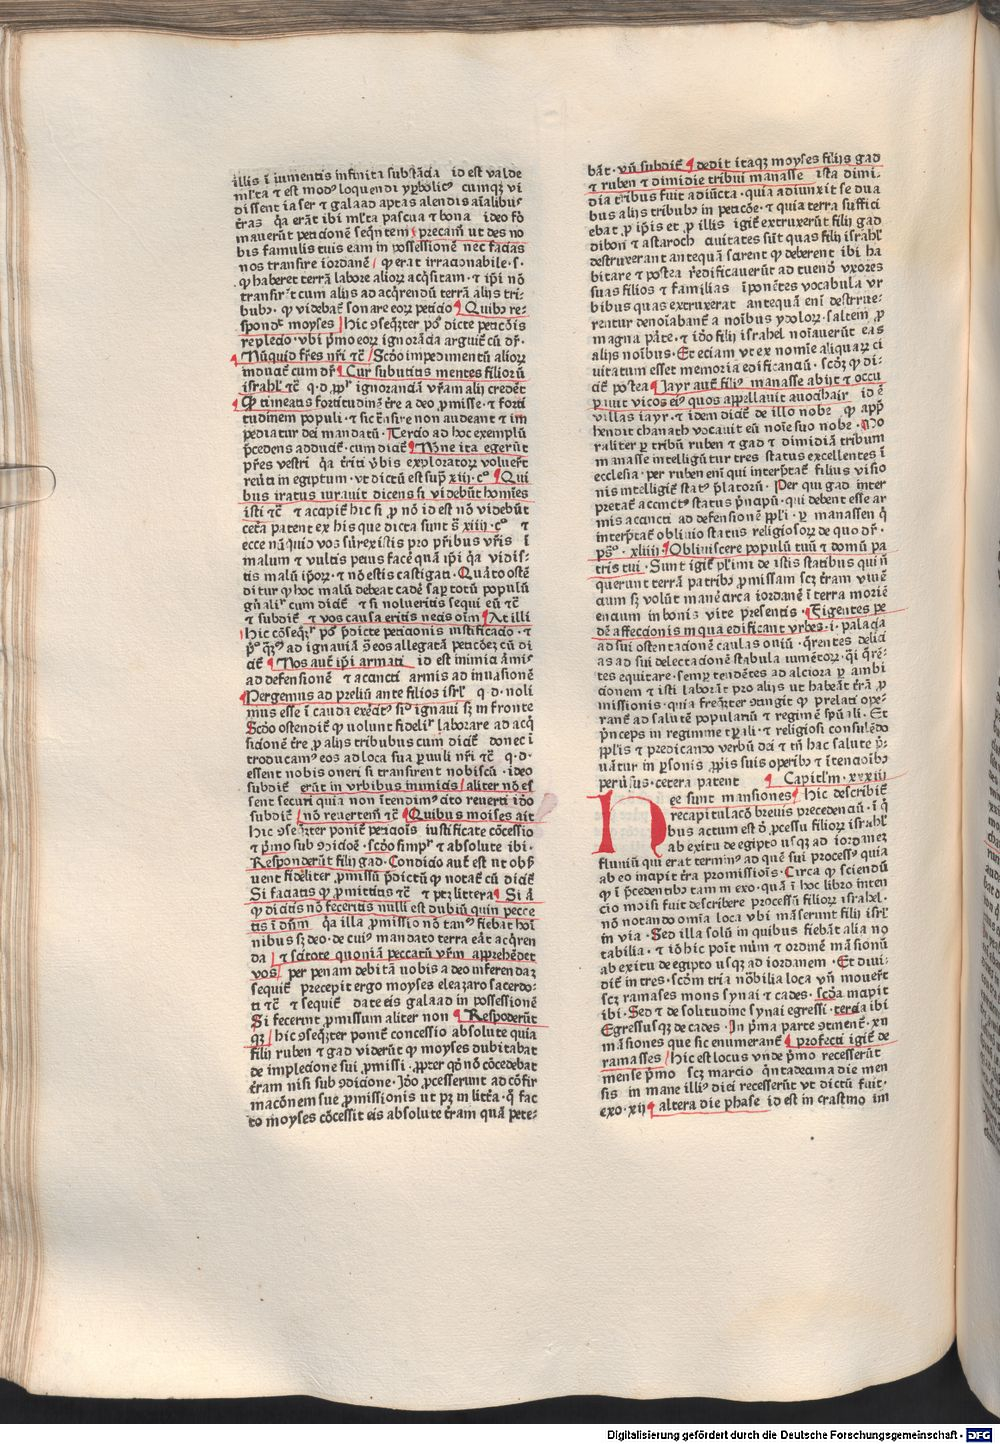 illis ĩ iumentis infinita substãcia id est valde
ml̃ta ⁊ est modꝰ loquendi yꝑbolicꝰ cumqꝫ vi
dissent iaser ⁊ galaad aptas alendis aĩalibus
t̃ras q̃a erãt ibi ml̃ta pascua ⁊ bona ideo fõ
mauerũt peticionẽ seq̃ntem precam̃ ut des no
bis famulis tuis eam in possessionẽ nec facias
nos transire iordanẽ ꝙ erat irracionabile · s ·
ꝙ haberet terrã labore alioꝝ acq̃sitam · ⁊ ip̃i nõ
transir̃t cum alijs ad acq̃rendũ terrã alijs tri-
bubꝰ · ꝙ videbat̃ sonare eoꝝ peticio Quibꝰ re-
spondit moyses hic ꝯseq̃nter põ dicte peticõis
repleciõ · vbi p̃mo eoꝝ ignorãcia arguit̃ cũ dr̃ ·
Nũquid fr̃es nr̃i ⁊c̃ Scdo impedimentũ alioꝝ
inducit̃ cum dr̃ Cur subuertitis mentes filiorũ
israhl̃ ⁊c̃ q · d · ꝓpt̃ ignoranciã vr̃am alij credẽt
Qꝙ timeatis fortitudinẽ t̃re a deo ꝓmisse · ⁊ forti
tudinem populi · ⁊ sic trãsire non audeant ⁊ im
pediatur dei mandatũ · Tercio ad hoc exemplũ
p̃cedens adducit̃ · cum dicit̃ Nõne ita egerũt
p̃res vestri q̃a t̃riti ṽbis exploratoꝝ voluer̃t
reuti in egiptum · vt dictũ est sup̃ xiij · c° Qui
bus iratus iurauit dicens si videbũt homĩes
isti ⁊c̃ ⁊ accipit̃ hic si ꝓ nõ id est nõ videbũt
cet̃a patent ex his que dicta sunt s̃ xiiij · c° ⁊
ecce nũquid vos surexistis pro p̃ribus vr̃is ĩ
malum ⁊ vultis peius facẽ quã ip̃i q̃a vidis-
tis malũ ip̃oꝝ · ⁊ nõ estis castigati · Quãto ostẽ
ditur ꝙ hoc malũ debeat cadẽ sup̃ totũ populũ
gñalit̃ cum dicit̃ ⁊ si nolueritis sequi eũ ⁊c̃
⁊ subdit̃ ⁊ vos causa eritis necis oĩm At illi
hic cõseq̃nt̃ põ p̃dicte peticionis iustificacio · ⁊
p̃º q̃ꝫº ad ignauiã s̃ eos allegatã peticõeꝫ cũ di
cit̃ Nos aut̃ ip̃i armati id est inimia ãmis
ad defensionẽ ⁊ accincti armis ad inuasionẽ
Pergemus ad preliũ ante filios isrl̃ q · d · noli
mus esse ĩ cauda exercitꝰ sicꝰ ignaui sꝫ in fronte
Scdo ostendit̃ ꝙ uolunt fidelit̃ laborare ad acq̃
sicionẽ t̃re ꝓ alijs tribubus cum dicit̃ donec ĩ
troducamꝰ eos ad loca sua ꝑuuli nr̃i ⁊c̃ q · d ·
essent nobis oneri si transirent nobiscũ · ideo
subdit̃ erũt in vrbibus munitis aliter nõ es
sent securi quia non ĩtendimꝰ cito reuerti iõo
subdit̃ nõ reuertem̃ ⁊c̃ Quibus moises ait
hic ꝯseq̃nter ponit̃ peticiois iustificate cõcessio
⁊ p̃mo sub ꝯdicioẽ · scdo simpl̃r ⁊ absolute ibi ·
Responderũt filij gad · Condicio aut̃ est ut obs̃
uent fideliter ꝓmissũ p̃dictũ ꝙ notat̃ cũ dicit̃
Si faciatis ꝙ ꝓmittitis ⁊c̃ ⁊ ptꝫ littera Si ã
ꝙ dicitis nõ feceritis nulli est dubiũ quin pecce
tis ĩ dñm q̃a illa ꝓmissio nõ tanꝰ fiebat hoĩ
nibus sꝫ deo · de cuiꝰ mandato terra eãt acq̃ren
da ⁊ scitote quoniã peccatũ vr̃m apprehẽdet
vos per penam debitã uobis a deo inferendaꝫ
sequit̃ precepit ergo moyses eleazaro sacerdo-
ti ⁊c̃ ⁊ sequit̃ date eis galaad in possessionẽ
Si fecerint ꝓmissum aliter non Responderũt
qꝫ hic ꝯseq̃nter ponit̃ concessio absolute quia
filij ruben ⁊ gad viderũt ꝙ moyses dubitabat
de implecione sui ꝓmissi · ꝓpter qd̃ nõ cõcedebat
t̃ram nisi sub ꝯdicione · Iõo ꝓcesserunt ad cõfir
macõnem sue ꝓmissionis ut pꝫ in litt̃a · q̃ fac
to moyses cõcessit eis absolute t̃ram quã pete-
bãt · vñ subdit̃ dedit itaqꝫ moyses filijs gad
⁊ ruben ⁊ dimidie tribui manasse ista dimi-
dia tribus fuit adiũcta · quia adiunxit se dua
bus alijs tribubꝰ in peticõe · ⁊ quia terra suffici
ebat ꝓ ip̃is et ꝓ illis igit̃ extruxerũt filij gad
dibon ⁊ astaroch ciuitates sũt quas filij israhl̃
destruxerant antequã scirent ꝙ deberent ibi ha
bitare ⁊ postea reedificauerũt ad tuendũ vxores
suas filios ⁊ familias ĩponẽtes vocabula vr
bibus quas extruxerat antequã eni destrue-
rentur denoĩabant̃ a noĩbus ydoloꝝ · saltem ꝓ
magna parte · ⁊ iõo filij israhel noĩauerũt eas
alijs noĩbus · Et eciam vt ex nomĩe aliquaꝝ ci
uitatum esset memoria edificandi · scdꝫ ꝙ di-
cit̃ postea Iayr aut̃ filiꝰ manasse abijt ⁊ occu
pauit vicos eiꝰ quos appellauit auothair id ẽ
villas iayr · ⁊ idem dicit̃ de illo nobe ꝙ app̃
hendit chanath vocauit eũ noĩe suo nobe · Mo
raliter per tribũ ruben ⁊ gad ⁊ dimidiã tribum
manasse intelligũtur tres status excellentes ĩ
ecclesia · per ruben eni qui interp̃tat̃ filius visio
nis intelligit̃ statꝰ p̃latorũ · Per qui gad inter
pretat̃ accinctꝰ status p̃ncipũ · qui debent esse ar
mis accincti ad defensionẽ ppl̃i · per manassen q̃
interp̃tat̃ obliuio status religiosoꝝ de quo dr̃ ·
ps̃º · xliiij Obliuiscere populũ tuũ ⁊ domũ pa
tris tui · Sunt igit̃ pl̃imi de istis statibus qui ñ
querunt terrã patribꝰ ꝓmissam scꝫ t̃ram viuẽ
cium sꝫ volũt manẽ circa iordanẽ ĩ terra moriẽ
cium in bonis vite presentis · Eigentes pe
dẽ affeccionis in qua edificant vrbes · i · palacia
ad sui ostentacionẽ caulas oniũ · q̃rentes delici
as ad sui delectacionẽ stabula iumẽtoꝝ · q̃i q̃rẽ-
tes equitare · semꝑ tendẽtes ad alciora ꝑ ambi
cionem ⁊ isti laborãt pro alijs ut habeãt t̃rã ꝓ
missionis · quia freq̃nter ꝯtingit ꝙ prelati ope-
rant̃ ad salutẽ popularũ ⁊ regimẽ spũali · Et
p̃nceps in regimine tꝑali · ⁊ religiosi consulẽdo
ppl̃is ⁊ predicando verbũ dei ⁊ tñ hac salute p̃-
uãtur in ꝑsonis ꝓprijs suis operibꝰ ⁊ ĩtencioĩbꝰ
peruersus · cetera patent Capitl̃m · xxxiij
Hee sunt mansiones hic describit̃
recapitulacõ breuis precedenciũ · ĩ q̃
bus actum est d̃ ꝓcessu filioꝝ israhl̃
ab exitu de egipto usqꝫ ad iordaneꝫ
fluuiũ qui erat terminꝰ ad quẽ sui processꝰ quia
ab eo incipit t̃ra promissiõis · Circa ꝙ sciendũ
ꝙ ĩ p̃cedentibꝰ tam in exo · quã ĩ hoc libro inten
cio moisi fuit describere processũ filioꝝ israhel ·
nõ notando om̃ia loca vbi mãserunt filij isrl̃
in via · Sed illa solũ in quibus fiebãt alia no
tabilia · ⁊ iõ hic poĩt nũm ⁊ ordinẽ mãsionũ
ab exitu de egipto usqꝫ ad iordanem · Et diui-
dit̃ in tres · scdm tria nõbilia loca vñ mouer̃t
scꝫ ramasses mons synai ⁊ cades · scda incipit
ibi · Sed ⁊ de solitudine synai egressi · tercia ibi
Egressusqꝫ de cades · In p̃ma parte ꝯtinent̃ · xij
mãsiones que sic enumerant̃ profecti igit̃ de
ramasses hic est locus vnde p̃mo recesserũt
mense p̃mo scꝫ marcio quintadecima die men
sis in mane illiꝰ diei recesserũt vt dictũ fuit ·
exo · xij altera die phase id est in crastino im
Digitalisierung gefördert durch die Deutsche Forschungsgemeinschaft - DFG